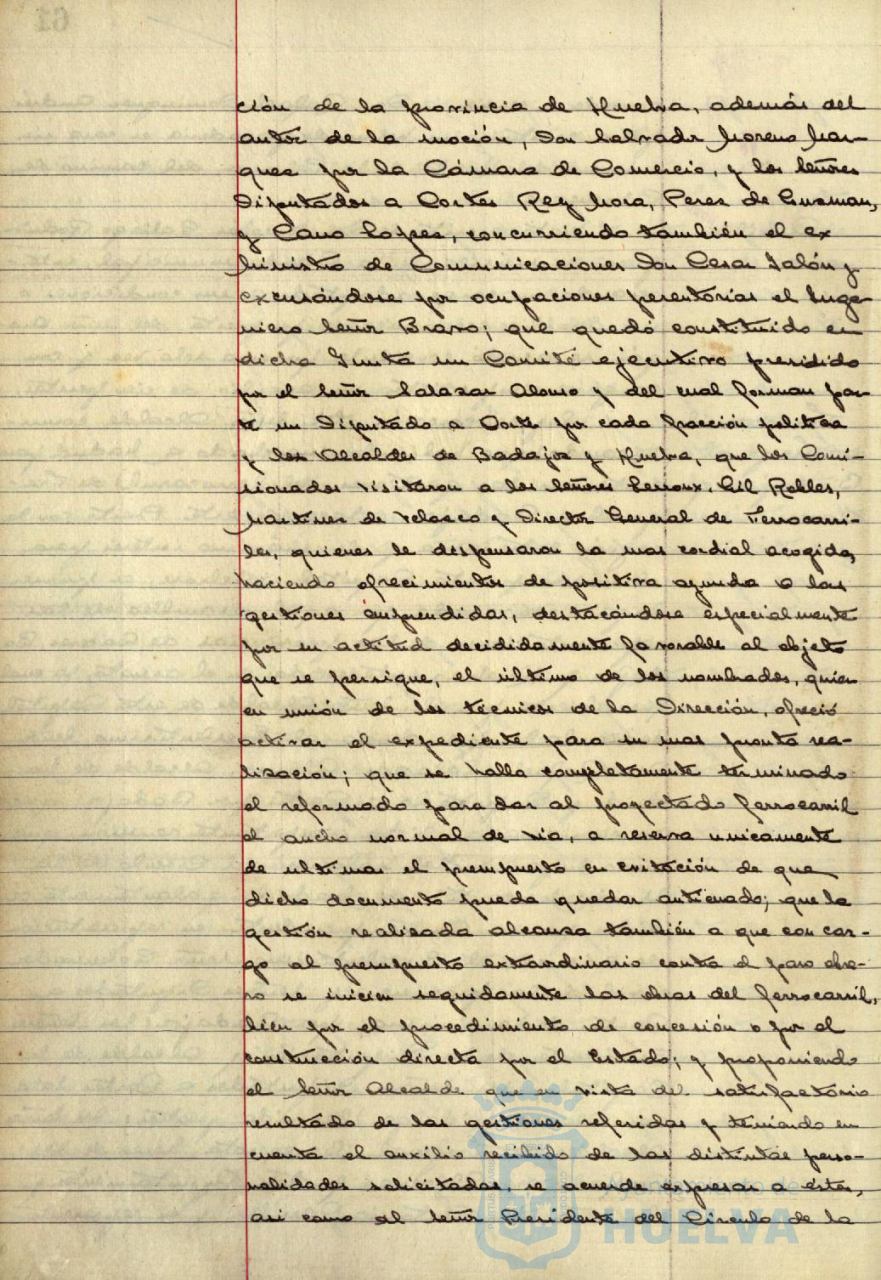 ción de la provincia de Huelva, además del
autor de la moción, Don Salvador Moreno Mar-
quez por la Cámara de Comercio, y los Señores
Diputados a Cortes Rey Mora, Perez de Guzman,
y Cano Lopez, concurriendo también el ex
Ministro de Comunicaciones Don Cesar Jalón y
excusándose por ocupaciones perentorias el Inge-
niero Señor Bravo; que quedó constituido en
dicha Junta un Comité ejecutivo presidido
por el Señor Salazar Alonso y del cual forman par-
te un Diputado a Cortes por cada fracción política
y los Alcaldes de Badajoz y Huelva, que los Comi-
sionados visitaron a los Señores Lerroux, Gil Robles,
Martinez de Velasco y Director General de Ferrocarri-
les, quienes le dispensaron la mas cordial acogida,
haciendo ofrecimientos de positiva ayuda a las
gestiones emprendidas, destacándose especialmente
por su actitud decididamente favorable al objeto
que se persigue, el último de los nombrados, quien
en unión de los técnicos de la Dirección, ofreció
activar el expediente para su mas pronta rea-
lización; que se halla completamente terminado
el reformado para dar al proyectado ferrocarril
el ancho normal de vía, a reserva unicamente
de ultimar el presupuesto en evitación de que
dicho documento pueda quedar anticuado; que la
gestión realizada alcanza también a que con car-
go al presupuesto extraordinario contra el paro obre-
ro se inicien seguidamente las obras del ferrocarril,
bien por el procedimiento de concesión o por el
construcción directa por el Estado; y proponiendo
el Señor Alcalde que en vista del satisfactorio
resultado de las gestiones referidas y teniendo en
cuenta el auxilio recibido de las distintas perso-
nalidades solicitadas, se acuerde expresar a éstas,
asi como al Señor Presidente del Circulo de la
HUELVA
61